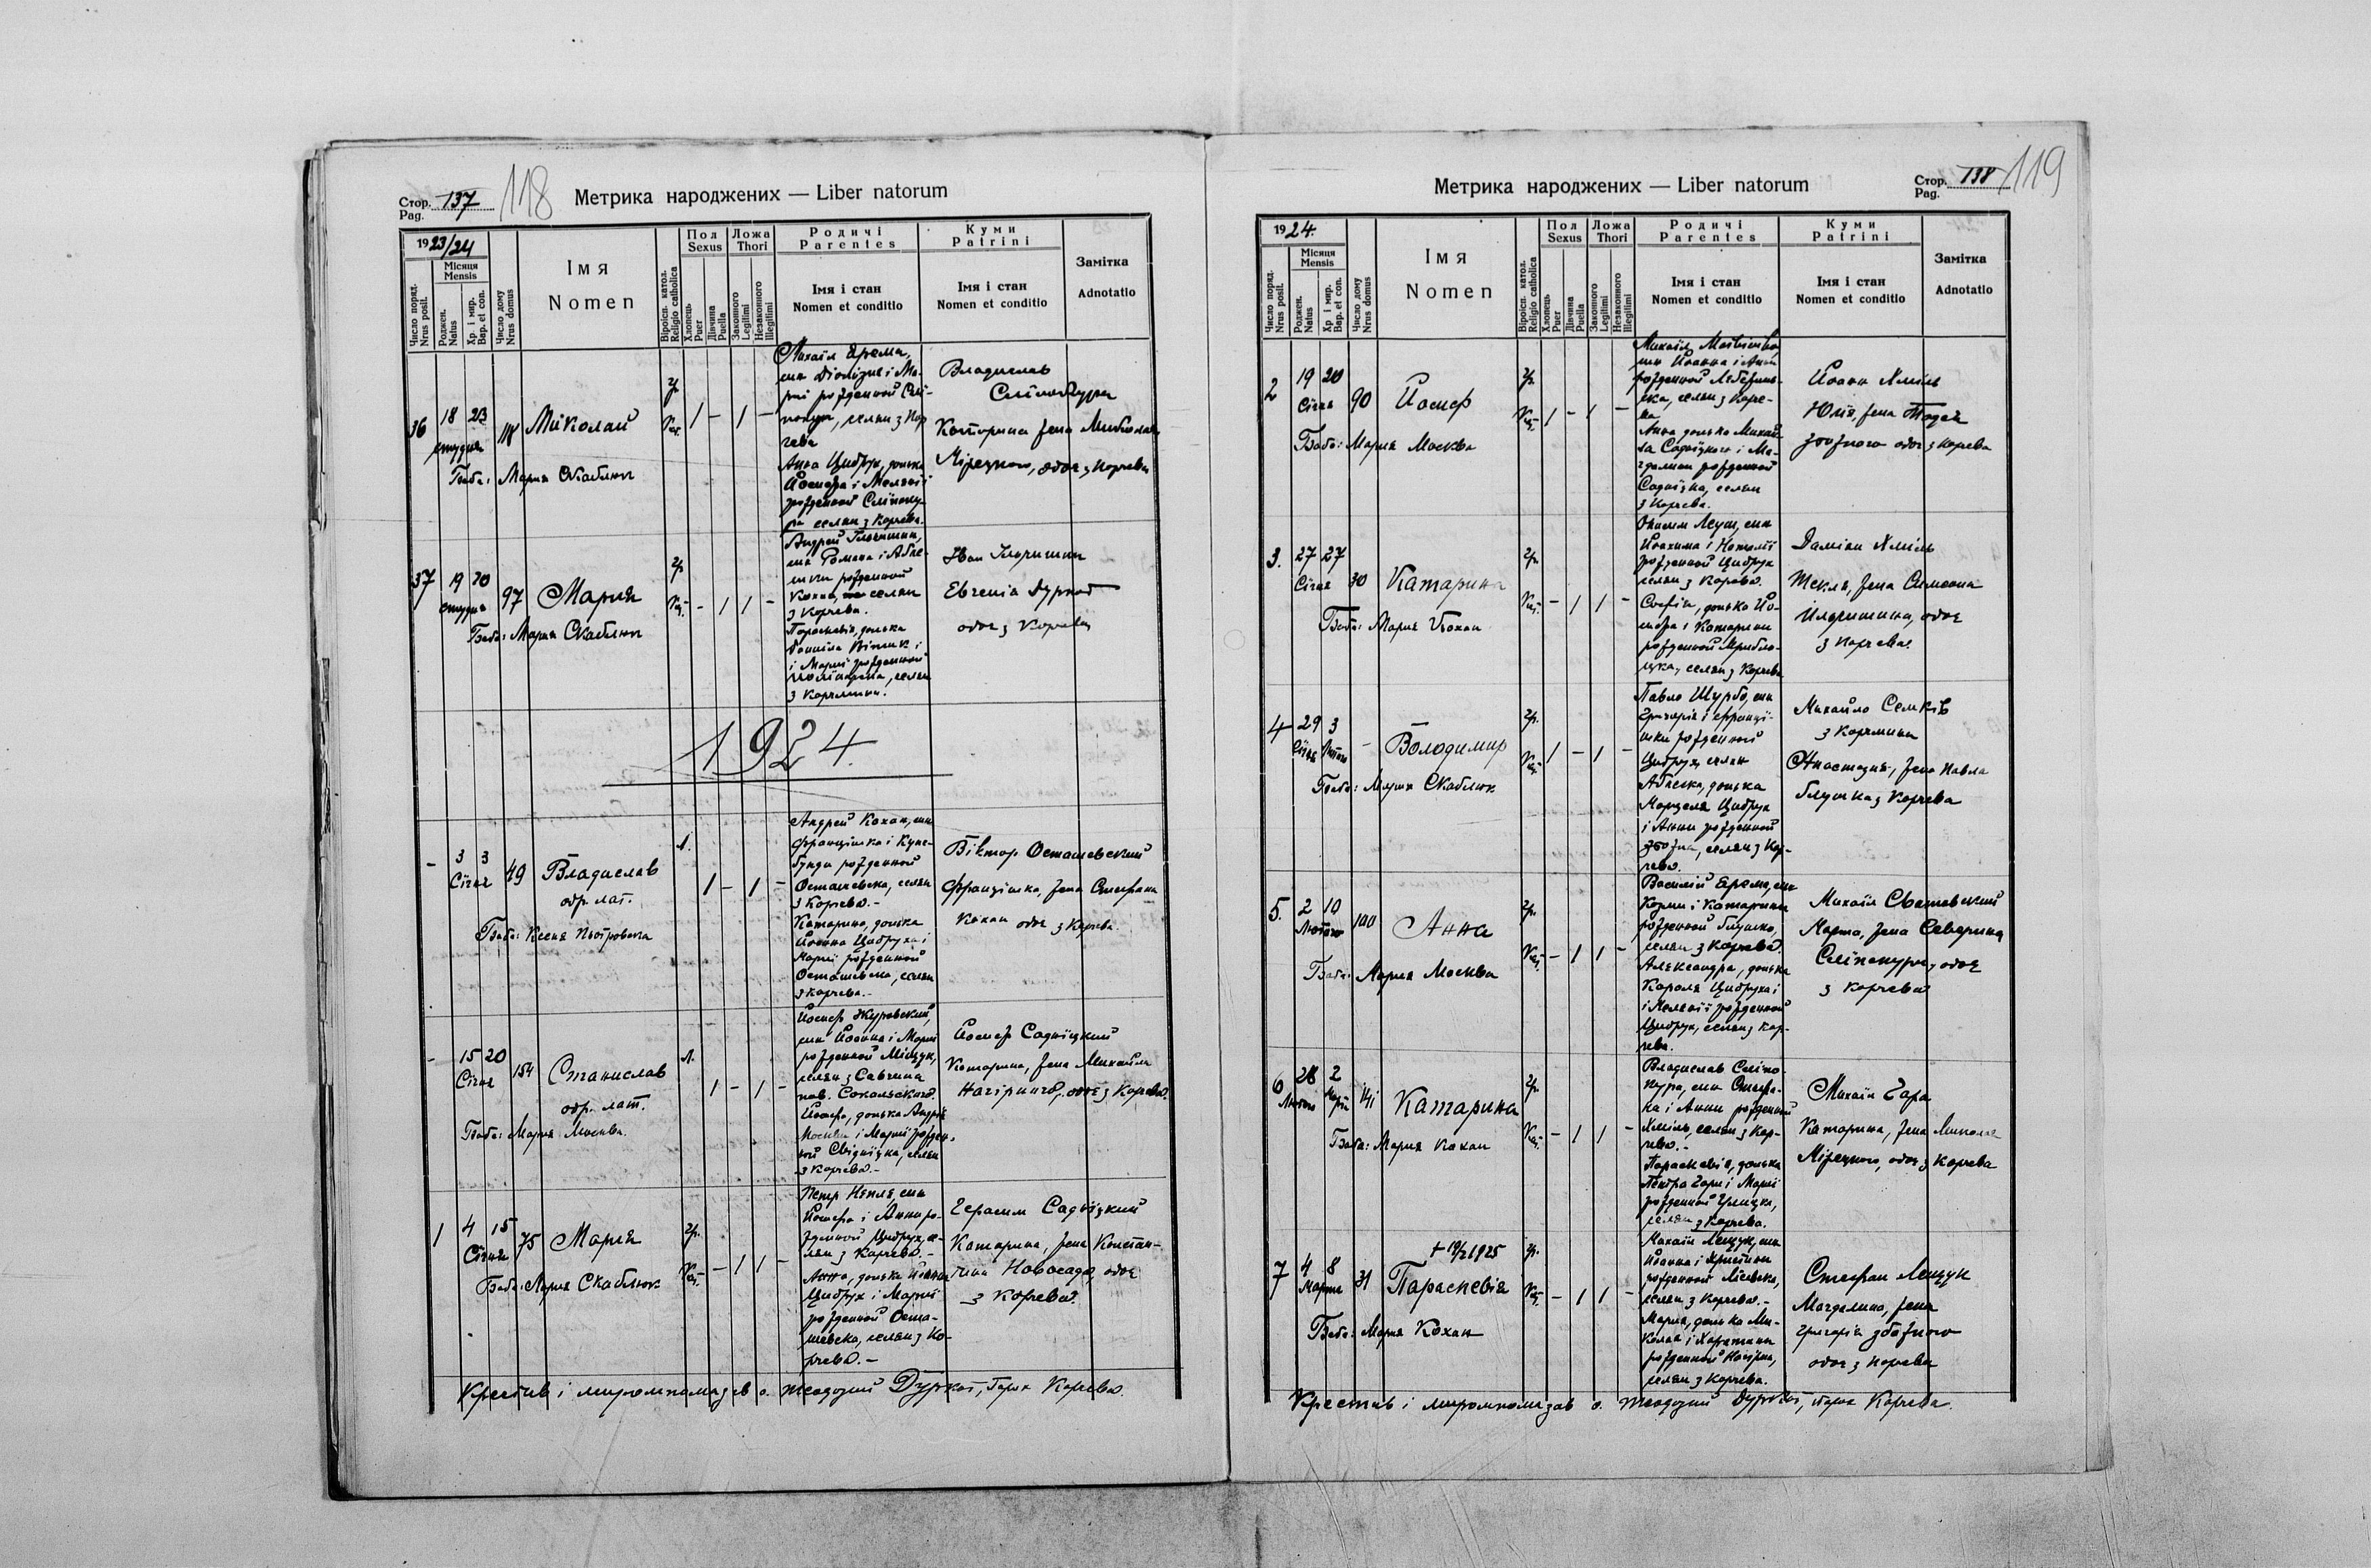 Стор. 137 118 Метрика народжених — Liber natorum
Pag.
1923/24
Число поряд. Nrus posit.
Місяця Mensis
Роджен. Natus
Хр. і мир. Bap. et con.
Число дому Nrus domus
Імя
Nomen
Віроісп. катол. Religio catholica
Пол
Sexus
Хлопець Puer
Дівчина Puella
Ложа
Thori
Законного Legitimi
Незаконного Illegitimi
Родичі
Parentes
Імя і стан
Nomen et conditio
Куми
Patrini
Імя і стан
Nomen et conditio
Замітка
Adnotatio
36 18 23 Миколай гр. 1 - 1 -
студня Кат.
Баба: Мария Скаблюк
Михаїл Ярема,
син Діонізия і Ма-
риї рожденної Слі-
селян з Кор
чева
Анна Цибрух, донька
Йосифа і Меланії
рожденної Сліпоку-
ра селян з Корчева.
Владислав
Сліпокура
Катарина жена Миколая
Мірецкого, обоє з Корчева
37 19 20 97 Мария гр. - 1 1 -
студня Кат.
Баба: Мария Скаблюк
Андрей
син Романа і
рожденної
Кохан, селян
з Корчева.
Параскевія, донька
Данила і
і Мариї рожденної
селян
з Корчмина.
Іван
Евгенія Дуркот
обоє з Корчева
1924.
- 3 3 49 Владислав л. 1 - 1 -
Січня обр. лат.
Баба: Ксеня Пьотровска
Андрей Кохан, син
Францішка і Куне-
гунди рожденної
Осташевска, селян
з Корчева.-
Катарина, донька
Йоанна Цибруха і
Мариї рожденної
Осташевска, селян
з Корчева.-
Віктор Осташевский
Францішка, жена Стефана
Кохан обоє з Корчева
- 15 20 154 Станислав л. 1 - 1 -
Січня обр. лат.
Баба: Мария Москва.
Йосиф Журавский,
син Йоанна і Мариї
рожденної Міщук,
селян з Савчина
пов. Сокальского.
Йосифа, донька Андрія
Москви і Мариї рожден-
ной Свідніцка, селян
з Корчева.-
Йосиф Садніцкий
Катарина, жена Михайла
обоє з Корчева.
1 4 15 75 Мария гр. - 1 1 -
Січня Кат.
Баба: Мария Скаблюк
Петр син
Йосифа і Анни ро-
жденной Цибрух, се-
лян з Корчева.-
Анна, донька Йоанна
Цибрух і Мариї
рожденной Оста-
шевска, селян з Ко-
рчева.-
Герасим Садніцкий
Катарина, жена Констан-
тина Новосада, обоє
з Корчева.
Крестив і миропомазав о. Теодозий Дуркот, Парох Корчева.
Метрика народжених — Liber natorum Стор. 138 119
Pag.
1924.
Число поряд. Nrus posit.
Місяця Mensis
Роджен. Natus
Хр. і мир. Bap. et con.
Число дому Nrus domus
Імя
Nomen
Віроісп. катол. Religio catholica
Пол
Sexus
Хлопець Puer
Дівчина Puella
Ложа
Thori
Законного Legitimi
Незаконного Illegitimi
Родичі
Parentes
Імя і стан
Nomen et conditio
Куми
Patrini
Імя і стан
Nomen et conditio
Замітка
Adnotatio
2 19 20 90 Йосиф гр. 1 - 1 -
Січня Кат.
Баба: Мария Москва
Михаїл
син Йоанна і Анни
рожденной
селян з Корче-
ва.
Анна донька Михай-
ла Садніцкого і Ма-
гдалини рожденной
Садніцка, селян
з Корчева.
Йоанн Хміль
Юлія, жена Тадея
збожного обоє з Корчева
3. 27 27 30 Катарина гр. - 1 1 -
Січня Кат.
Баба: Мария Кохан
Онисим Лещ, син
Йоахима і Наталії
рожденной Цибрух
селян з Корчева.
Софія, донька Йо-
сифа і Катарини
рожденной
селян з Корчева
Даміян Хміль
Текля, жена Симеона
обоє
з Корчева.
4 29 3 - Володимир гр. 1 - 1 -
Січня Лютого Кат.
Баба: Мария Скаблюк
Павло Щурбо, син
Григорія і Францї-
шки рожденной
Цибрух, селян
донька
Марцеля Цибрух
і Анни рожденной
збожна, селян з Кор-
чева.
Михайло Семків
з Корчмина
Анастазия, жена Павла
Глушка з Корчева
5. 2 10 100 Анна гр. - 1 1 -
Лютого Кат.
Баба: Мария Москва
Василій Ярема, син
і Катарини
рожденной Глушко,
селян з Корчева.
Александра, донька
Кароля Цибруха і
і Меланії рожденной
Цибрух, селян з Кор-
чева.
Михаїл Сваткевский
Марта, жена Северина
Сліпокури, обоє
з Корчева
6 28 2 141 Катарина гр. - 1 1 -
Лютого Марта Кат.
Баба: Мария Кохан
Владислав Сліпо-
кура, син Стефа-
на і Анни рожденной
Хміль, селян з Кор-
чева.-
Параскевія, донька
Петра Гари і Мариї
рожденной
селян з Корчева.
Михаїл Гара
Катарина, жена Миколая
Мірецкого, обоє з Корчева
7 4 8 31 Параскевія гр. - 1 1 -
Марта Кат.
† 19/2 1925
Баба: Мария Кохан
Михаїл Лещук, син
Йоанна і Христини
рожденной
селян з Корчева.-
Мария, донька Ми-
колая і
рожденной
селян з Корчева.
Стефан Лещук
Магдалина, жена
Григорія збожного
обоє з Корчева
Крестив і миропомазав о. Теодозий Дуркот, парох Корчева.